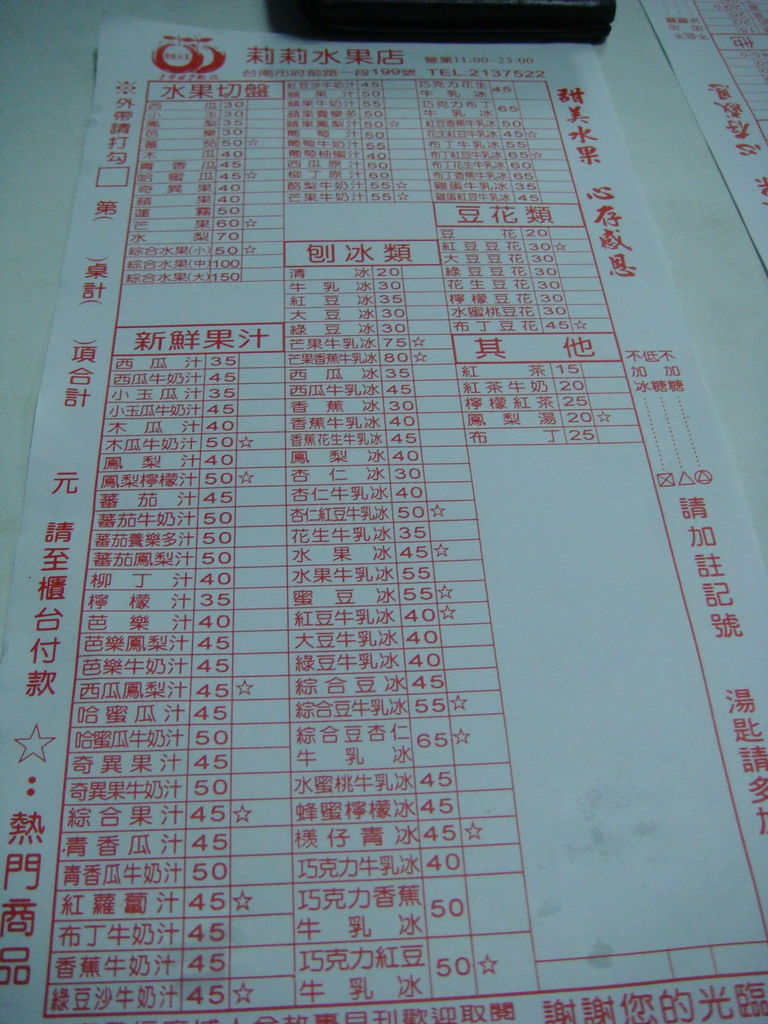 莉莉水果店 營業11:00-23:00
1947創店
台南市府前路一段199號 TEL:2137522
※外帶請打勾
第( )桌計( )項合計 元 請至櫃台付款
☆:熱門商品
水果切盤
西瓜 30
小玉 30
鳳梨 30
芭樂 30
蕃茄 50☆
木瓜 40
青香瓜 45
哈蜜瓜 45☆
奇異果 40
蘋果 40
蓮霧 50
芒果 60☆
水梨 70
綜合水果(小) 50☆
綜合水果(中) 100
綜合水果(大) 150
新鮮果汁
西瓜汁 35
西瓜牛奶汁 45
小玉瓜汁 35
小玉瓜牛奶汁 45
木瓜汁 40
木瓜牛奶汁 50☆
鳳梨汁 40
鳳梨檸檬汁 50☆
蕃茄汁 45
蕃茄牛奶汁 50
蕃茄養樂多汁 50
蕃茄鳳梨汁 50
柳丁汁 40
檸檬汁 35
芭樂汁 40
芭樂鳳梨汁 45
芭樂牛奶汁 45
西瓜鳳梨汁 45☆
哈蜜瓜汁 45
哈蜜瓜牛奶汁 50
奇異果汁 45
奇異果牛奶汁 50
綜合果汁 45☆
青香瓜汁 45
青香瓜牛奶汁 50
紅蘿蔔汁 45☆
布丁牛奶汁 45
香蕉牛奶汁 45
綠豆沙牛奶汁 45☆
紅豆沙牛奶汁 45
蘋果汁 50
蘋果牛奶汁 55
蘋果養樂多 50
蘋果鳳梨汁 50☆
葡萄汁 50
葡萄牛奶汁 55
葡萄柚蜜汁 40
西瓜原汁 60
柳丁原汁 60
酪梨牛奶汁 55☆
芒果牛奶汁 55☆
刨冰類
清冰 20
牛乳冰 30
紅豆冰 35
大豆冰 30
綠豆冰 30
芒果牛乳冰 75☆
芒果香蕉牛乳冰 80☆
西瓜冰 35
西瓜牛乳冰 45
香蕉冰 30
香蕉牛乳冰 40
香蕉花生牛乳冰 45
鳳梨冰 40
杏仁冰 30
杏仁牛乳冰 40
杏仁紅豆牛乳冰 50☆
花生牛乳冰 35
水果冰 45☆
水果牛乳冰 55
蜜豆冰 55☆
紅豆牛乳冰 40☆
大豆牛乳冰 40
綠豆牛乳冰 40
綜合豆冰 45
綜合豆牛乳冰 55☆
綜合豆杏仁牛乳冰 65☆
水蜜桃牛乳冰 45
蜂蜜檸檬冰 45
檨仔青冰 45☆
巧克力牛乳冰 40
巧克力香蕉牛乳冰 50
巧克力紅豆牛乳冰 50☆
巧克力花生牛乳冰 45
巧克力布丁牛乳冰 65
紅豆香蕉牛乳冰 50
花生紅豆牛乳冰 45☆
布丁牛乳冰 55
布丁紅豆牛乳冰 65☆
布丁花生牛乳冰 60
布丁香蕉牛乳冰 65
雞蛋牛乳冰 35
雞蛋紅豆牛乳冰 45
豆花類
豆花 20
紅豆豆花 30☆
大豆豆花 30
綠豆豆花 30
花生豆花 30
檸檬豆花 30
水蜜桃豆花 30
布丁豆花 45☆
其他
紅茶 15
紅茶牛奶 20
檸檬紅茶 25
鳳梨湯 20☆
布丁 25
甜美水果 心存感恩
不加冰
低糖
不加糖
請加註記號
湯匙請多加
謝謝您的光臨